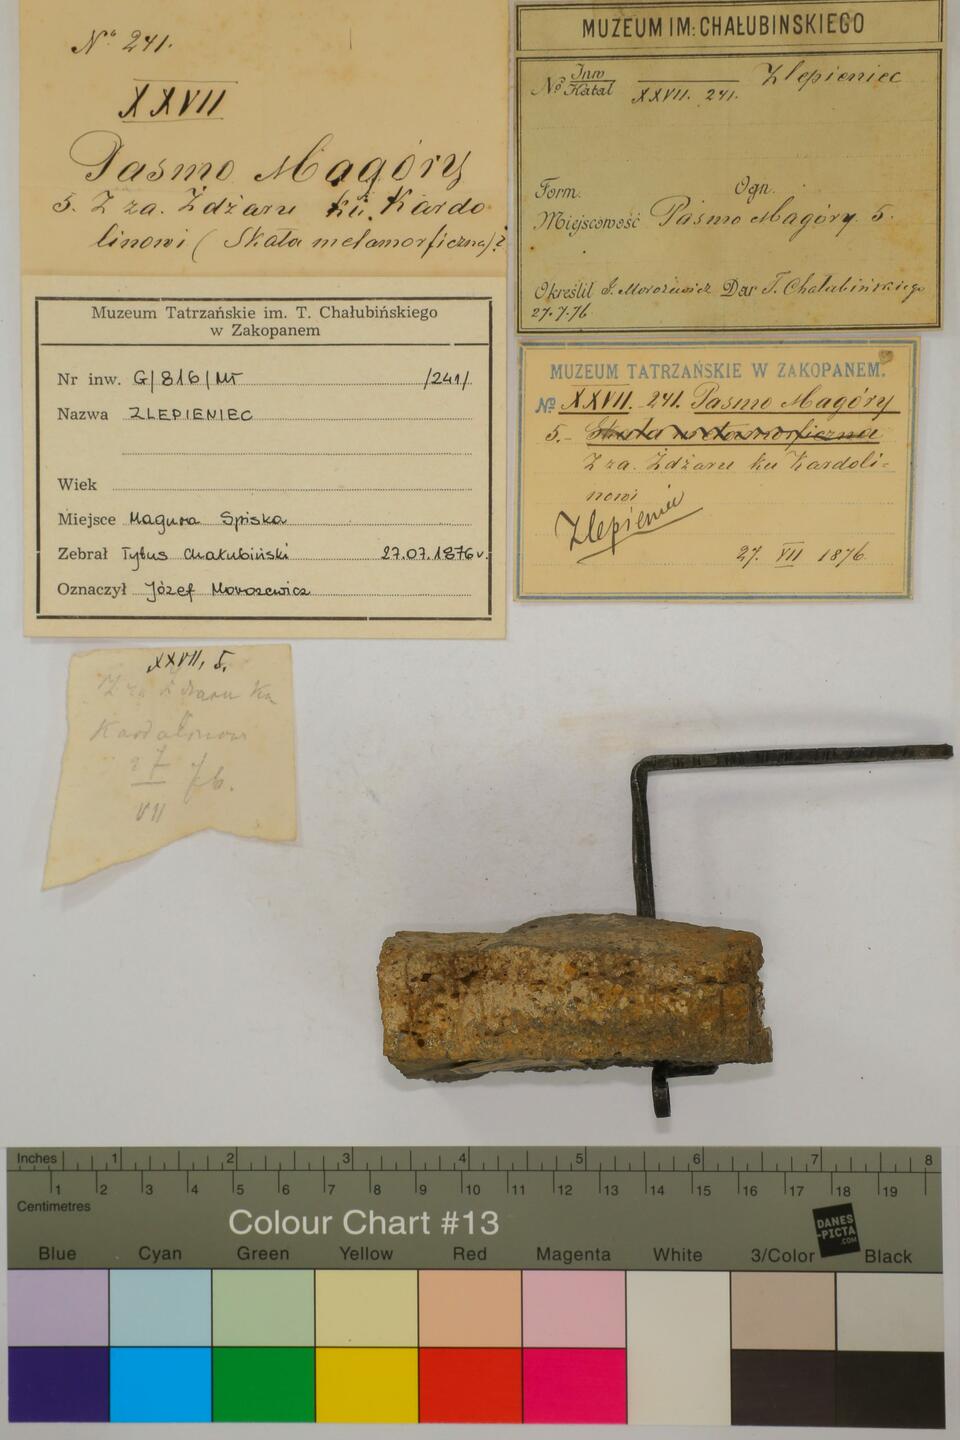 No 241.
XXVII
Pasmo Magóry
5. Z za. Żdżaru ku Kardo
linowi (Skała metamorficzna)?
MUZEUM IM: CHAŁUBINSKIEGO
No Inw Katal XXVII. 241. Zlepieniec
Form. Ogn.
Miejscowość Pasmo Magóry 5.
Określił J. Morozewicz Dar T. Chałubińskiego
27.7.76
Muzeum Tatrzańskie im. T. Chałubińskiego
w Zakopanem
Nr inw. G/816/MT /241/
Nazwa ZLEPIENIEC
Wiek
Miejsce Magura Spiska
Zebrał Tytus Chałubiński 27.07.1876 r.
Oznaczył Józef Morozewicz
MUZEUM TATRZAŃSKIE W ZAKOPANEM.
No XXVII. 241. Pasmo Magóry
5. - Skała metamorficzna
Z za. Żdżaru ku Kardoli-
nowi
Zlepieniec
27. VII 1876
XXVII, 5.
Z za Żdżaru ku
Kardolinowi
27 76.
VII
Inches 1 2 3 4 5 6 7 8
1 2 3 4 5 6 7 8 9 10 11 12 13 14 15 16 17 18 19
Centimetres
Colour Chart #13
DANES
-PICTA
.COM
Blue Cyan Green Yellow Red Magenta White 3/Color Black